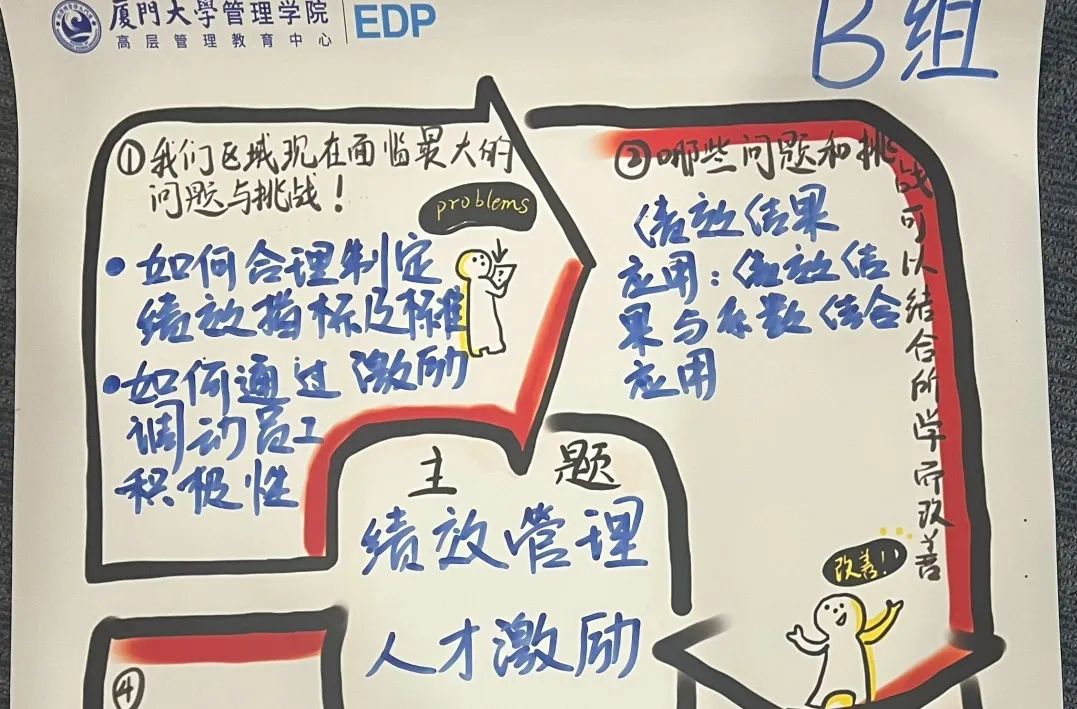 厦門大學管理学院
高层管理教育中心
EDP
B组
①我们区域现在面临最大的
问题与挑战！
problems
•如何合理制定
绩效指标及标准
•如何通过激励
调动员工
积极性
②哪些问题和挑战可以结合所学而改善
绩效结果
应用：绩效结
果与系数结合
应用
改善！
主题
绩效管理
人才激励
④